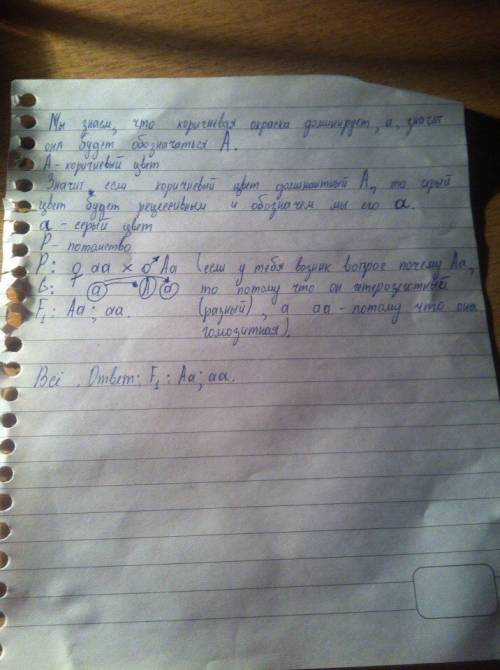 Мы знаем, что коричневая окраска доминирует, а, значит
она будет обозначаться А.
А - коричневый цвет
Значит, если коричневый цвет доминантный А, то серый
цвет будет рецессивным и обозначем мы его а.
а - серый цвет
P - потомство
P: ♀ aa × ♂ Aa (если у тебя возник вопрос почему Аа,
G: a A a то потому что он гетерозиготный
F₁: Aa; aa. (разный), а аа - потому что она
гомозиготная).
Всё. Ответ: F₁: Aa; aa.